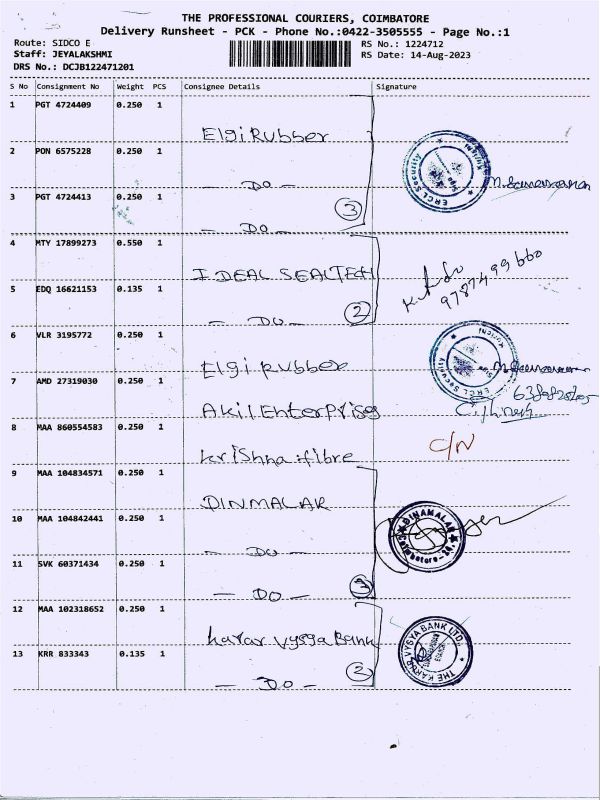 THE PROFESSIONAL COURIERS, COIMBATORE
Delivery Runsheet - PCK - Phone No.:0422-3505555 - Page No.:1
Route: SIDCO E
RS No.: 1224712
Staff: JEYALAKSHMI
RS Date: 14-Aug-2023
DRS No.: DCJB122471201
S No Consignment No Weight PCS Consignee Details Signature
1 PGT 4724409 0.250 1
Elgi Rubber
2 PON 6575228 0.250 1
ERCL Security
- DO -
3 PGT 4724413 0.250 1
3
- DO -
4 MTY 17899273 0.550 1
IDEAL SEALTECH
5 EDQ 16621153 0.135 1
9787499660
2
- DO -
6 VLR 3195772 0.250 1
Elgi Rubber
ERCL Security
7 AMD 27319030 0.250 1
Akil Enterprises
8 MAA 860554583 0.250 1
C/N
Krishna fibre
9 MAA 104834571 0.250 1
DINMALAR
10 MAA 104842441 0.250 1
DINAMALAR
- DO -
11 SVK 60371434 0.250 1
3
- DO -
12 MAA 102318652 0.250 1
karar vysya Bank
THE KARUR VYSYA BANK LTD.
13 KRR 833343 0.135 1
2
- DO -